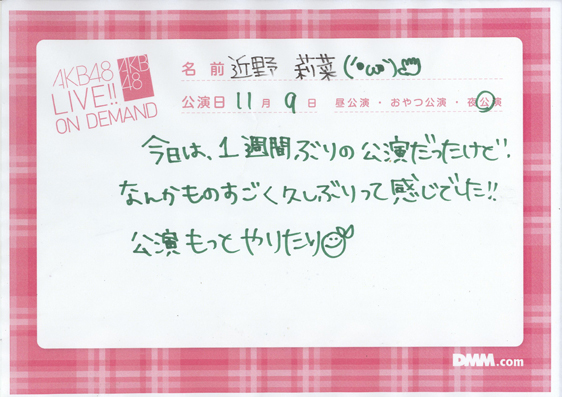 AKB48
LIVE!!
ON DEMAND
AKB
48
名前 近野 莉菜(´•ω•`)
公演日 11月9日 昼公演・おやつ公演・夜公演
今日は、1週間ぶりの公演だったけど、
なんかものすごく久しぶりって感じでした!!
公演もっとやりたい
DMM.com